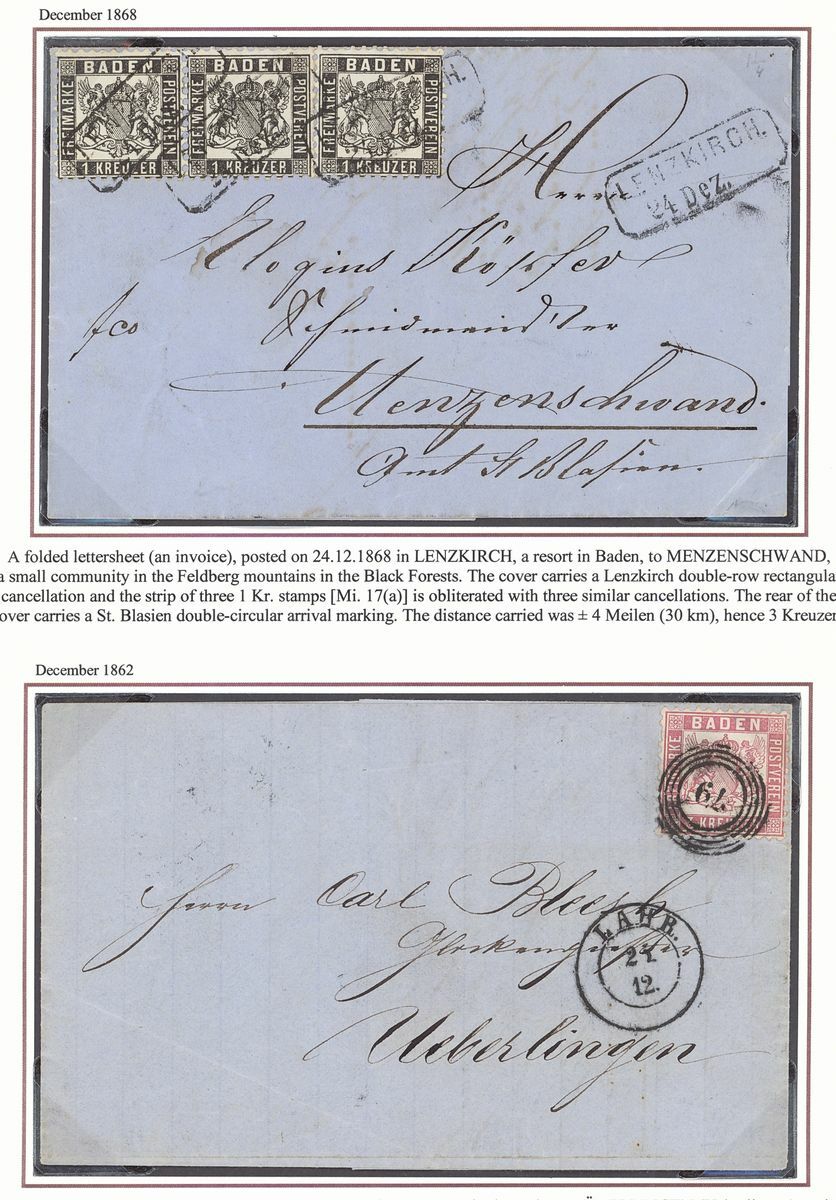 December 1868
BADEN BADEN BADEN
FREIMARKE POSTVEREIN FREIMARKE POSTVEREIN FREIMARKE POSTVEREIN
1 KREUZER 1 KREUZER 1 KREUZER
LENZKIRCH.
24 Dez.
Herrn
Alogius Köpfer
fco Schmidmeister
Menzenschwand.
Amt St Blasien.
A folded lettersheet (an invoice), posted on 24.12.1868 in LENZKIRCH, a resort in Baden, to MENZENSCHWAND,
a small community in the Feldberg mountains in the Black Forests. The cover carries a Lenzkirch double-row rectangula
cancellation and the strip of three 1 Kr. stamps [Mi. 17(a)] is obliterated with three similar cancellations. The rear of the
over carries a St. Blasien double-circular arrival marking. The distance carried was ± 4 Meilen (30 km), hence 3 Kreuzer
December 1862
BADEN
POSTVEREIN
KREU
79
Herrn Carl Bleesh
Glockengiesser
LAHR.
24.
12.
Ueberlingen